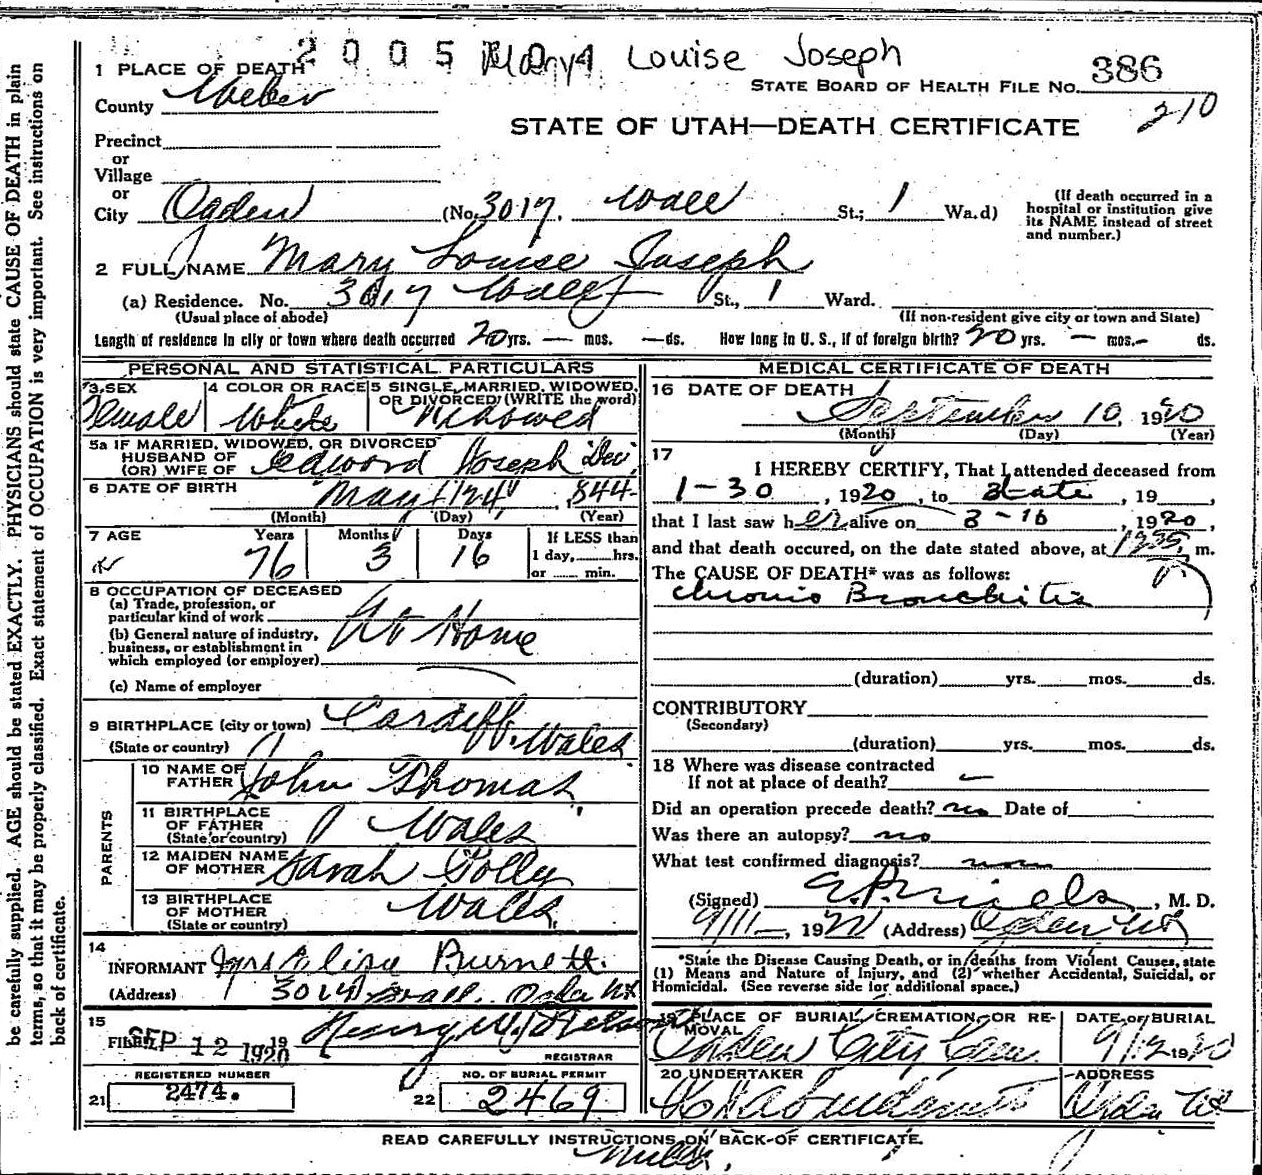 2005 Mary Louise Joseph
1 PLACE OF DEATH
STATE BOARD OF HEALTH FILE NO. 386
County Weber
210
STATE OF UTAH—DEATH CERTIFICATE
Precinct
or
Village
or
City Ogden (No. 3017. Wall St.; 1 Wa.d)
(If death occurred in a
hospital or institution give
its NAME instead of street
and number.)
2 FULL NAME Mary Louise Joseph
(a) Residence. No. 3017 Wall St., 1 Ward.
(Usual place of abode) (If non-resident give city or town and State)
Length of residence in city or town where death occurred 20 yrs. — mos. — ds. How long in U. S., if of foreign birth? 20 yrs. — mos. — ds.
PERSONAL AND STATISTICAL PARTICULARS
3. SEX Female
4 COLOR OR RACE White
5 SINGLE, MARRIED, WIDOWED,
OR DIVORCED (WRITE the word)
Widowed
5a IF MARRIED, WIDOWED, OR DIVORCED
HUSBAND OF
(OR) WIFE OF Edword Joseph Dec.
6 DATE OF BIRTH May 24, 1844
(Month) (Day) (Year)
7 AGE Years Months Days
76 3 16
If LESS than
1 day, hrs.
or min.
8 OCCUPATION OF DECEASED
(a) Trade, profession, or
particular kind of work At Home
(b) General nature of industry,
business, or establishment in
which employed (or employer)
(c) Name of employer
9 BIRTHPLACE (city or town) Cardiff,
(State or country) Wales
PARENTS
10 NAME OF
FATHER John Thomas
11 BIRTHPLACE
OF FATHER
(State or country) Wales
12 MAIDEN NAME
OF MOTHER Sarah
13 BIRTHPLACE
OF MOTHER
(State or country) Wales
14
INFORMANT Mrs Elisa Burnett
(Address) 3014 Wall. Ogden Ut
15
FILED SEP 12 1920 19 Henry W.
REGISTRAR
REGISTERED NUMBER
21 2474.
NO. OF BURIAL PERMIT
22 2469
MEDICAL CERTIFICATE OF DEATH
16 DATE OF DEATH
September 10, 1920
(Month) (Day) (Year)
17
I HEREBY CERTIFY, That I attended deceased from
1-30, 1920, to date, 19
that I last saw her alive on 8-16, 1920,
and that death occured, on the date stated above, at 1235 m.
The CAUSE OF DEATH* was as follows:
Chronic Bronchitis
(duration) yrs. mos. ds.
CONTRIBUTORY
(Secondary)
(duration) yrs. mos. ds.
18 Where was disease contracted
If not at place of death? —
Did an operation precede death? no Date of
Was there an autopsy? no
What test confirmed diagnosis? none
(Signed) E.P. Mills, M. D.
9/11—, 1920 (Address) Ogden Ut
*State the Disease Causing Death, or in deaths from Violent Causes, state
(1) Means and Nature of Injury, and (2) whether Accidental, Suicidal, or
Homicidal. (See reverse side for additional space.)
19 PLACE OF BURIAL, CREMATION, OR RE-
MOVAL
Ogden City Cem.
DATE OF BURIAL
9/12 1920
20 UNDERTAKER
ADDRESS
Ogden Ut
READ CAREFULLY INSTRUCTIONS ON BACK OF CERTIFICATE.
be carefully supplied. AGE should be stated EXACTLY. PHYSICIANS should state CAUSE OF DEATH in plain
terms, so that it may be properly classified. Exact statement of OCCUPATION is very important. See instructions on
back of certificate.